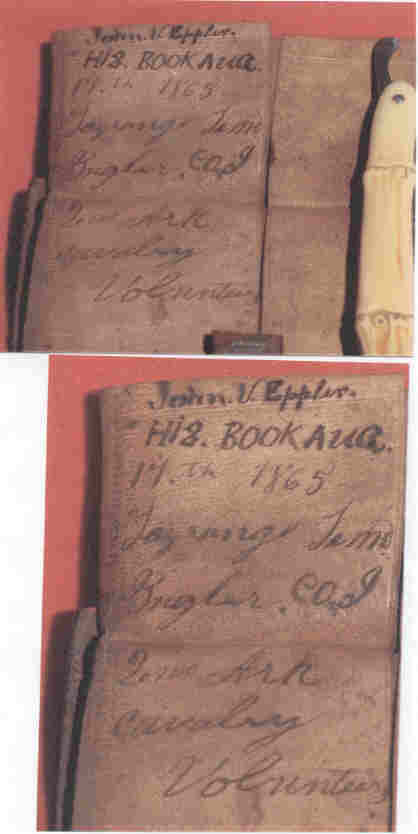 John. V. Eppler.
HIS. BOOK AUG.
17.th 1865
Lagrange Tenn
Bugler. CO. I
2em Ark
cavalry
Volunteurs
John. V. Eppler.
HIS. BOOK AUG.
17.th 1865
Lagrange Tenn
Bugler. CO. I
2em Ark
cavalry
Volunteurs